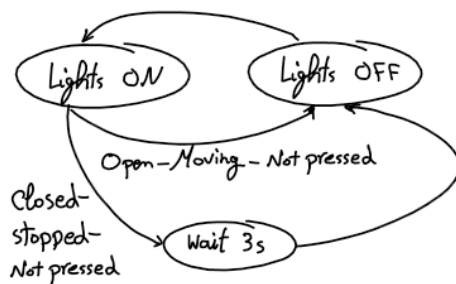 Lights ON
Lights OFF
Open-Moving-Not pressed
Closed-
stopped-
Not pressed
Wait 3s